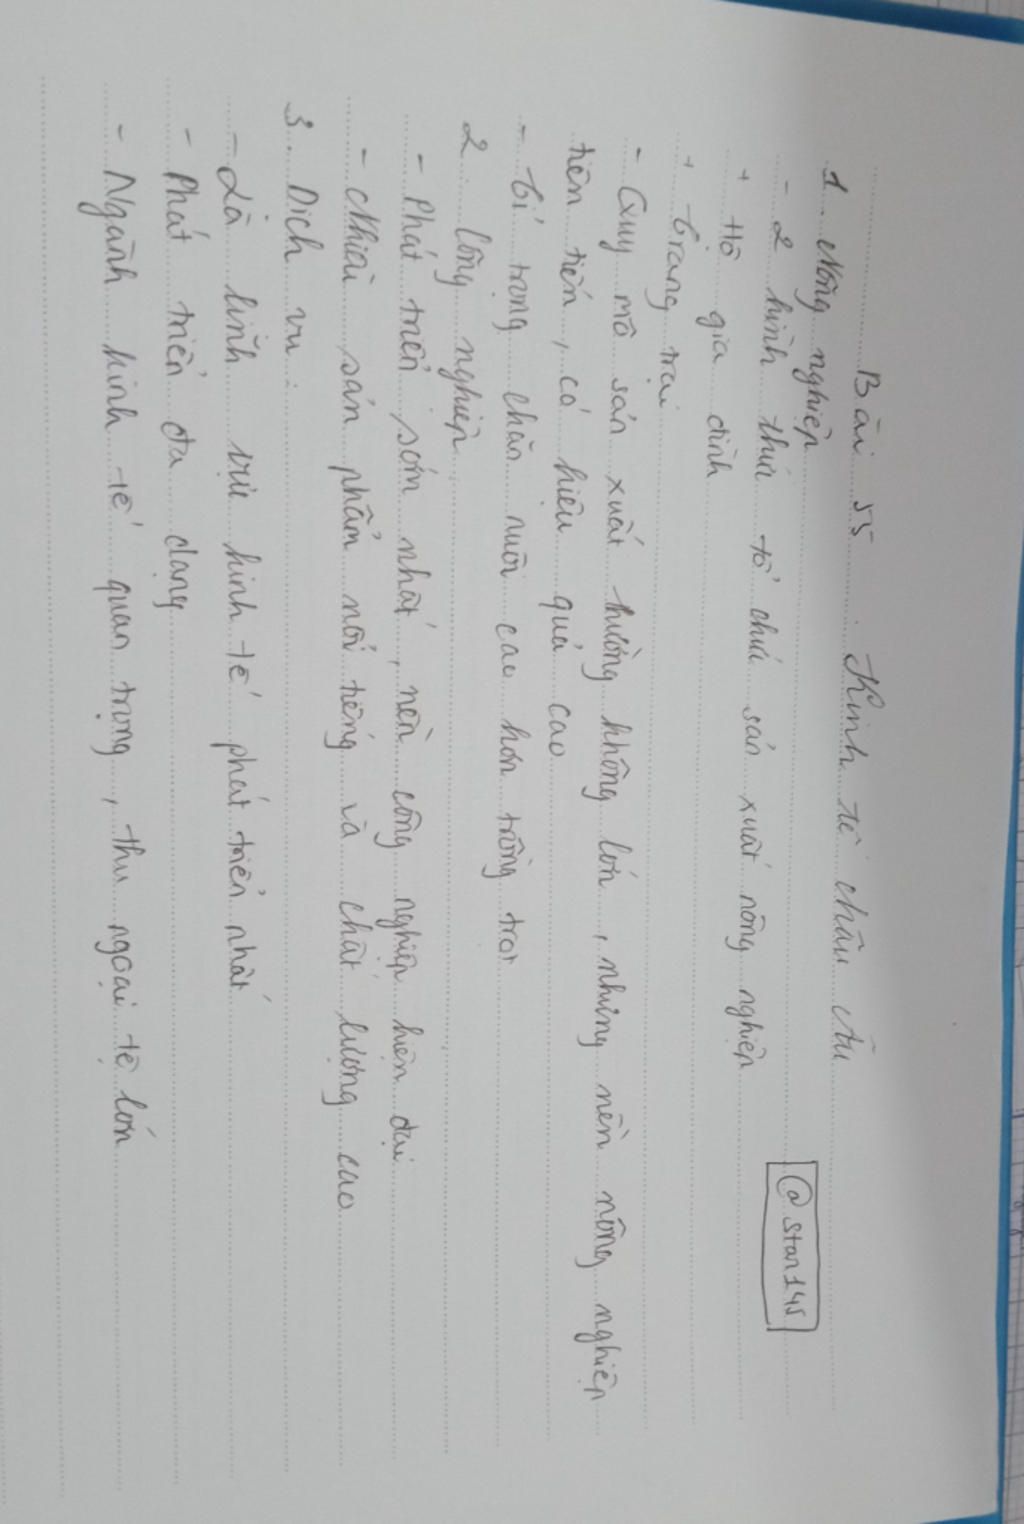 Bài 55. Kinh tế châu Âu
1. Nông nghiệp
@stan145
- 2 hình thức tổ chức sản xuất nông nghiệp
+ Hộ gia đình
+ Trang trại
- Quy mô sản xuất thường không lớn, nhưng nền nông nghiệp
tiên tiến, có hiệu quả cao
- Tỉ trọng chăn nuôi cao hơn trồng trọt
2. Công nghiệp
- Phát triển sớm nhất, nền công nghiệp hiện đại
- Nhiều sản phẩm nổi tiếng và chất lượng cao
3. Dịch vụ:
- Là lĩnh vực kinh tế phát triển nhất
- Phát triển đa dạng
- Ngành kinh tế quan trọng, thu ngoại tệ lớn